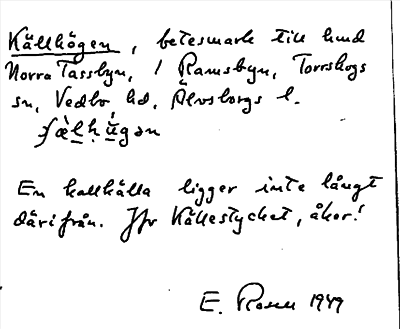 Källhögen, betesmark till hmd
Norra Tassbyn, / Ramsbyn, Torrskogs
sn, Vedbo hd, Älvsborgs l.
En kallkälla ligger inte långt
därifrån. Jfr Källestycket, åker!
E. Rosell 1949